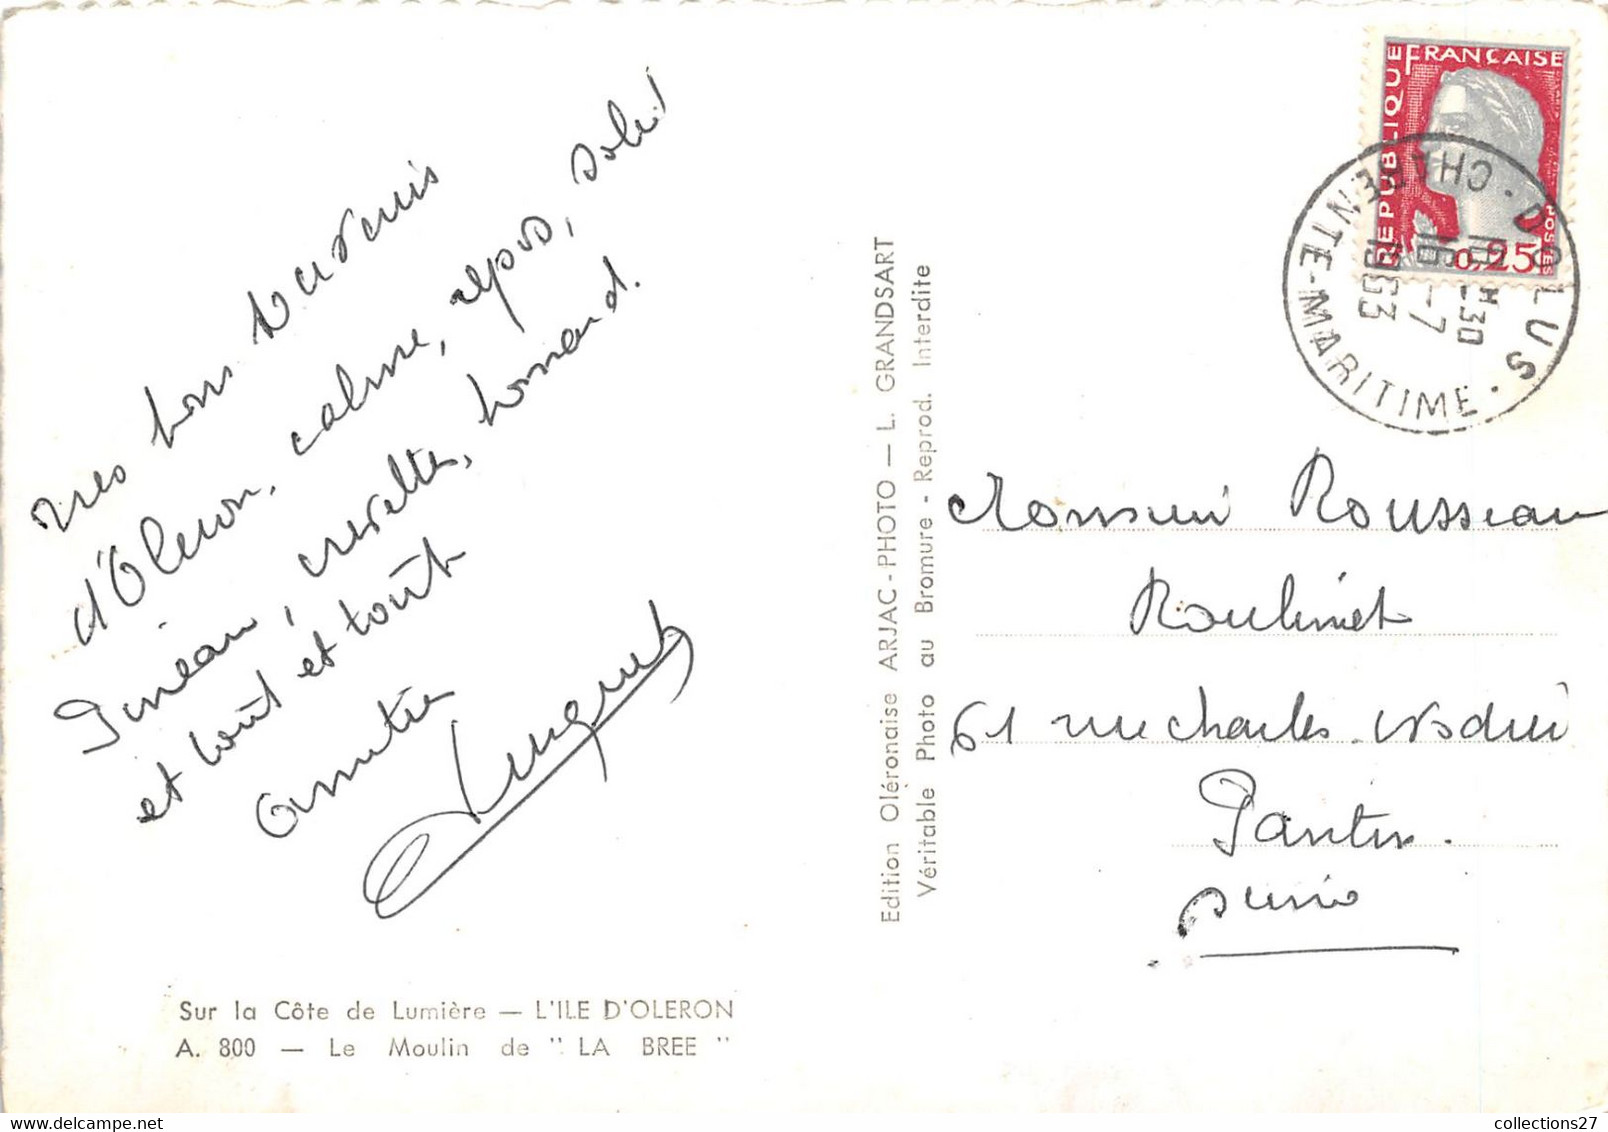 Très bons souvenirs
d'Oleron, calme, repos, soleil
Pineau, crevettes, homard.
et tout et tout
Amitiés
Sur la Côte de Lumière — L'ILE D'OLERON
A. 800 — Le Moulin de " LA BREE "
Edition Oléronaise ARJAC-PHOTO — L. GRANDSART
Véritable Photo au Bromure - Reprod. Interdite
REPUBLIQUE FRANÇAISE
POSTES
0,25
DOLUS
CHARENTE-MARITIME
16-7
1963
Monsieur Rousseau
Roulinet
61 rue Charles Nodier
Pantin.
Seine
collections27